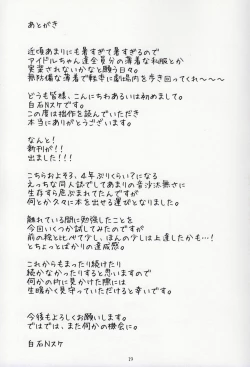 あとがき
近頃あまりにも暑すぎて暑すぎるので
アイドルちゃん達全員分の薄着な私服とか
実装されないかなと願う日々。
無防備な薄着で軽率に劇場内を歩き回ってくれ～～～
どうも皆様、こんにちわあるいは初めまして。
白石Nスケです。
この度は拙作を読んでいただき
本当にありがとうございます。
なんと！
新刊が！！
出ました！！！
こちらおよそ、4年ぶりくらい？になる
えっちな同人誌でしてあまりの音沙汰無さに
生存すら危ぶまれてたんですが
何とかかんとか久々に本を出せる運びとなりました。
触れている間に勉強したことを
今回いくつか試してみたのですが
前の絵と比べて少し、ほんの少しは上達したかも…！
とちょっとばかりの達成感。
これからもまったり続けたり
続かなかったりすると思いますので
何かの折に見かけた際には
生暖かく見守っていただけると幸いです。
今後もよろしくお願いします。
ではでは、また何かの機会に。
白石Nスケ
19